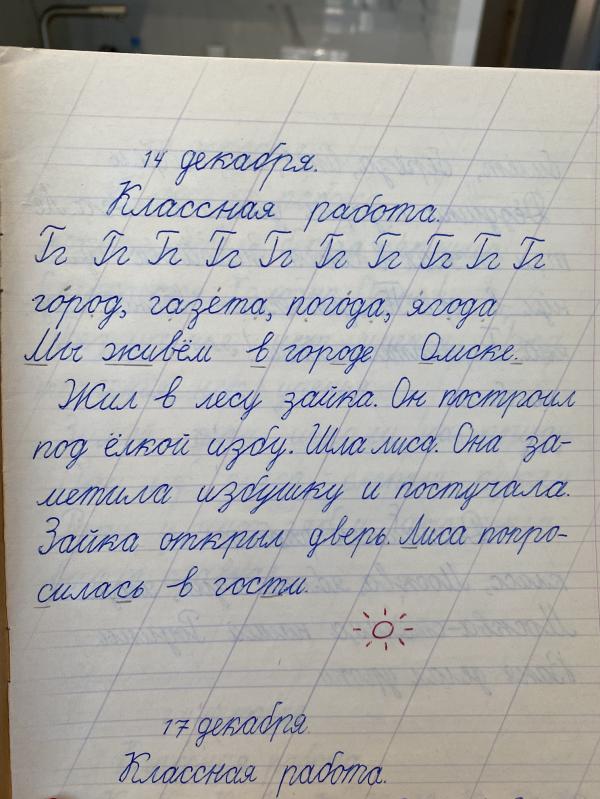 14 декабря.
Классная работа.
Гг Гг Гг Гг Гг Гг Гг Гг Гг Гг
город, газета, погода, ягода
Мы живём в городе Омске.
Жил в лесу зайка. Он построил
под ёлкой избу. Шла лиса. Она за-
метила избушку и постучала.
Зайка открыл дверь. Лиса попро-
силась в гости.
17 декабря.
Классная работа.